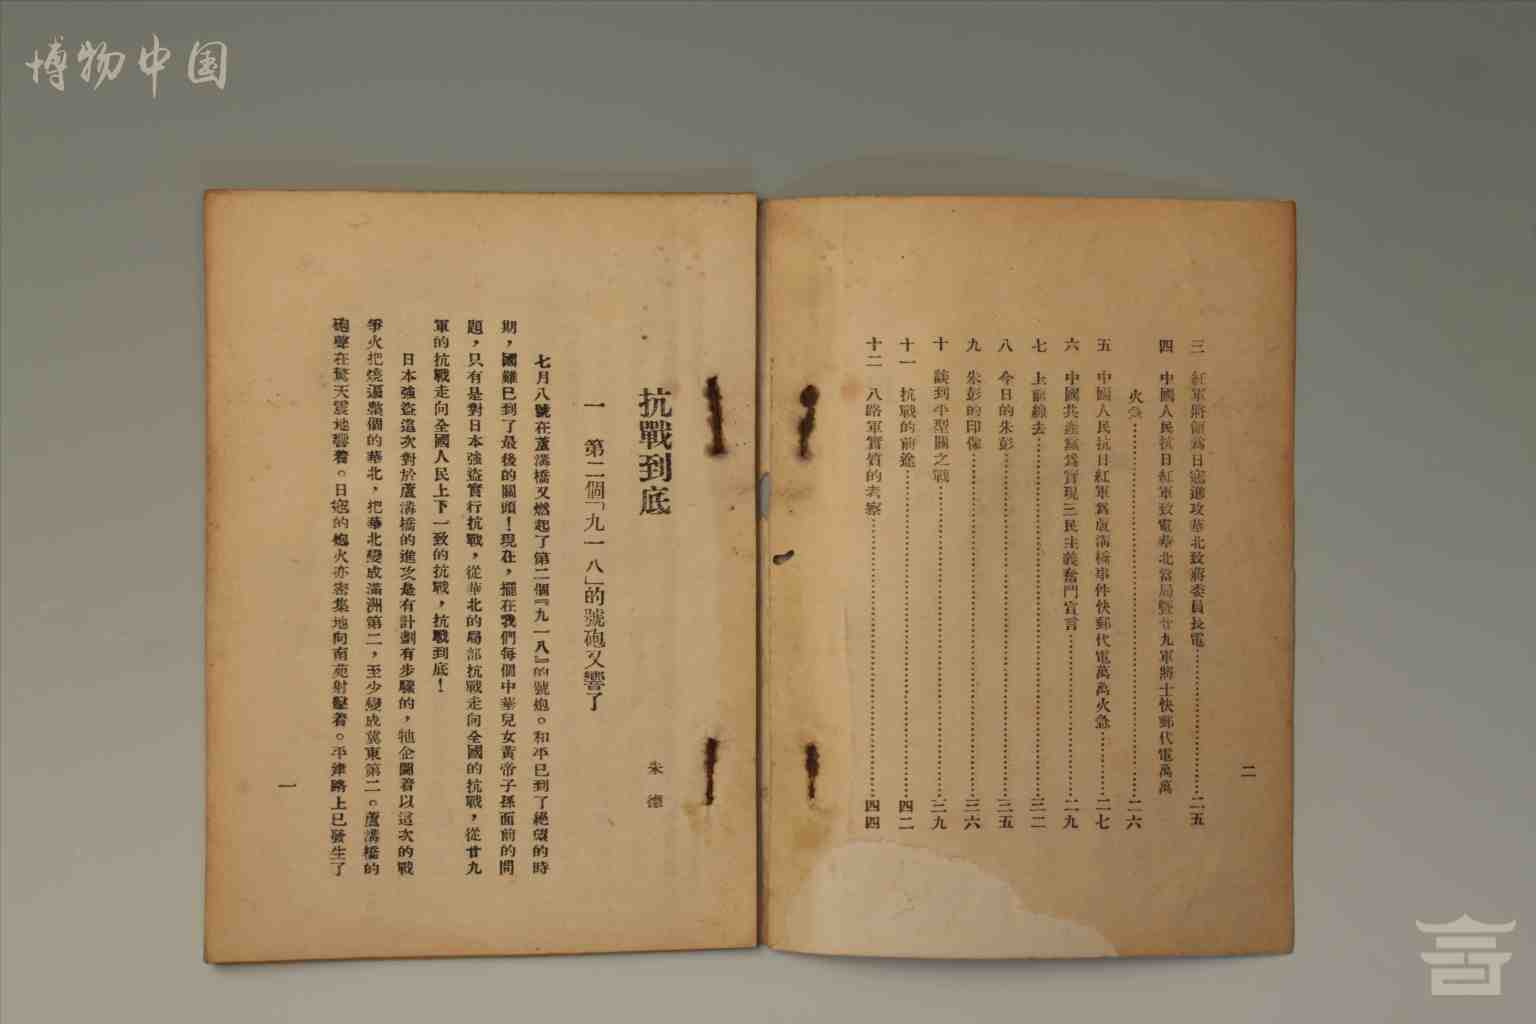 博物中国
三 紅軍將領爲日寇進攻華北致蔣委員長電……二五
四 中國人民抗日紅軍致電華北當局暨廿九軍將士快郵代電萬萬
火急……二六
五 中國人民抗日紅軍爲盧溝橋事件快郵代電萬萬火急……二七
六 中國共產黨爲實現三民主義奮鬥宣言……二九
七 上前線去……三二
八 今日的朱彭……三五
九 朱彭的印像……三六
十 談到平型關之戰……三九
十一 抗戰的前途……四二
十二 八路軍實質的考察……四四
二
抗戰到底
朱德
一 第二個「九一八」的號砲又響了
七月八號在蘆溝橋又燃起了第二個『九一八』的號炮。和平已到了絕望的時
期，國難已到了最後的關頭！現在，擺在我們每個中華兒女黃帝子孫面前的問
題，只有是對日本強盜實行抗戰，從華北的局部抗戰走向全國的抗戰，從廿九
軍的抗戰走向全國人民上下一致的抗戰，抗戰到底！
日本強盜這次對於蘆溝橋的進攻是有計劃有步驟的，牠企圖着以這次的戰
爭火把燒遍整個的華北，把華北變成滿洲第二，至少變成冀東第二。蘆溝橋的
砲聲在驚天震地響着。日寇的炮火亦密集地向南苑射擊着。平津路上已發生了
一